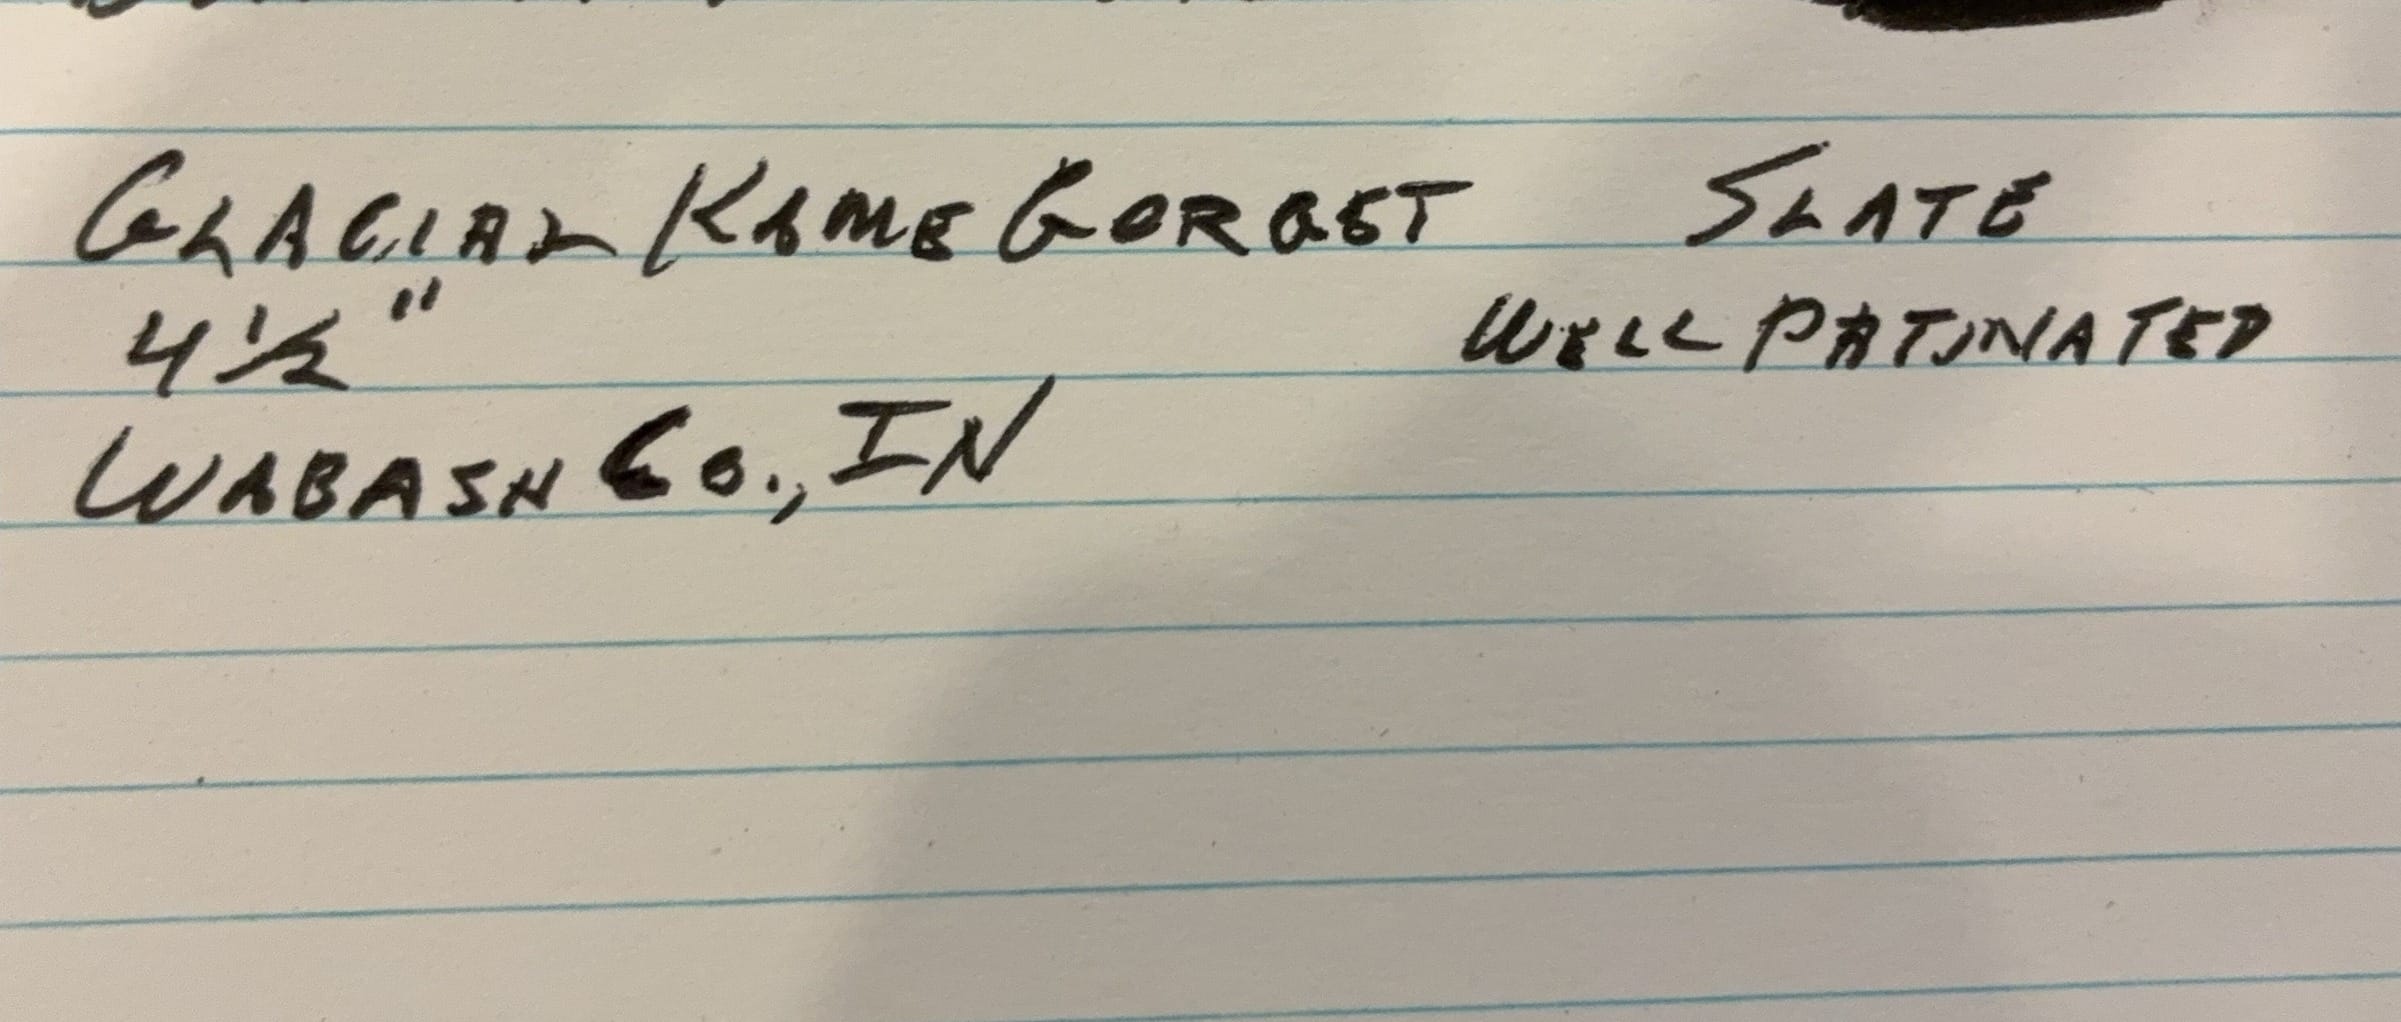 GLACIAL KAME GORGET SLATE
4 1/2" WELL PATINATED
WABASH CO., IN